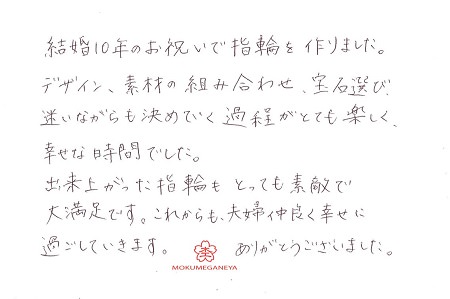 結婚10年のお祝いで指輪を作りました。
デザイン、素材の組み合わせ、宝石選び
迷いながらも決めていく過程がとても楽しく、
幸せな時間でした。
出来上がった指輪もとっても素敵で
大満足です。これからも、夫婦仲良く幸せに
過ごしていきます。 ありがとうございました。
MOKUMEGANEYA